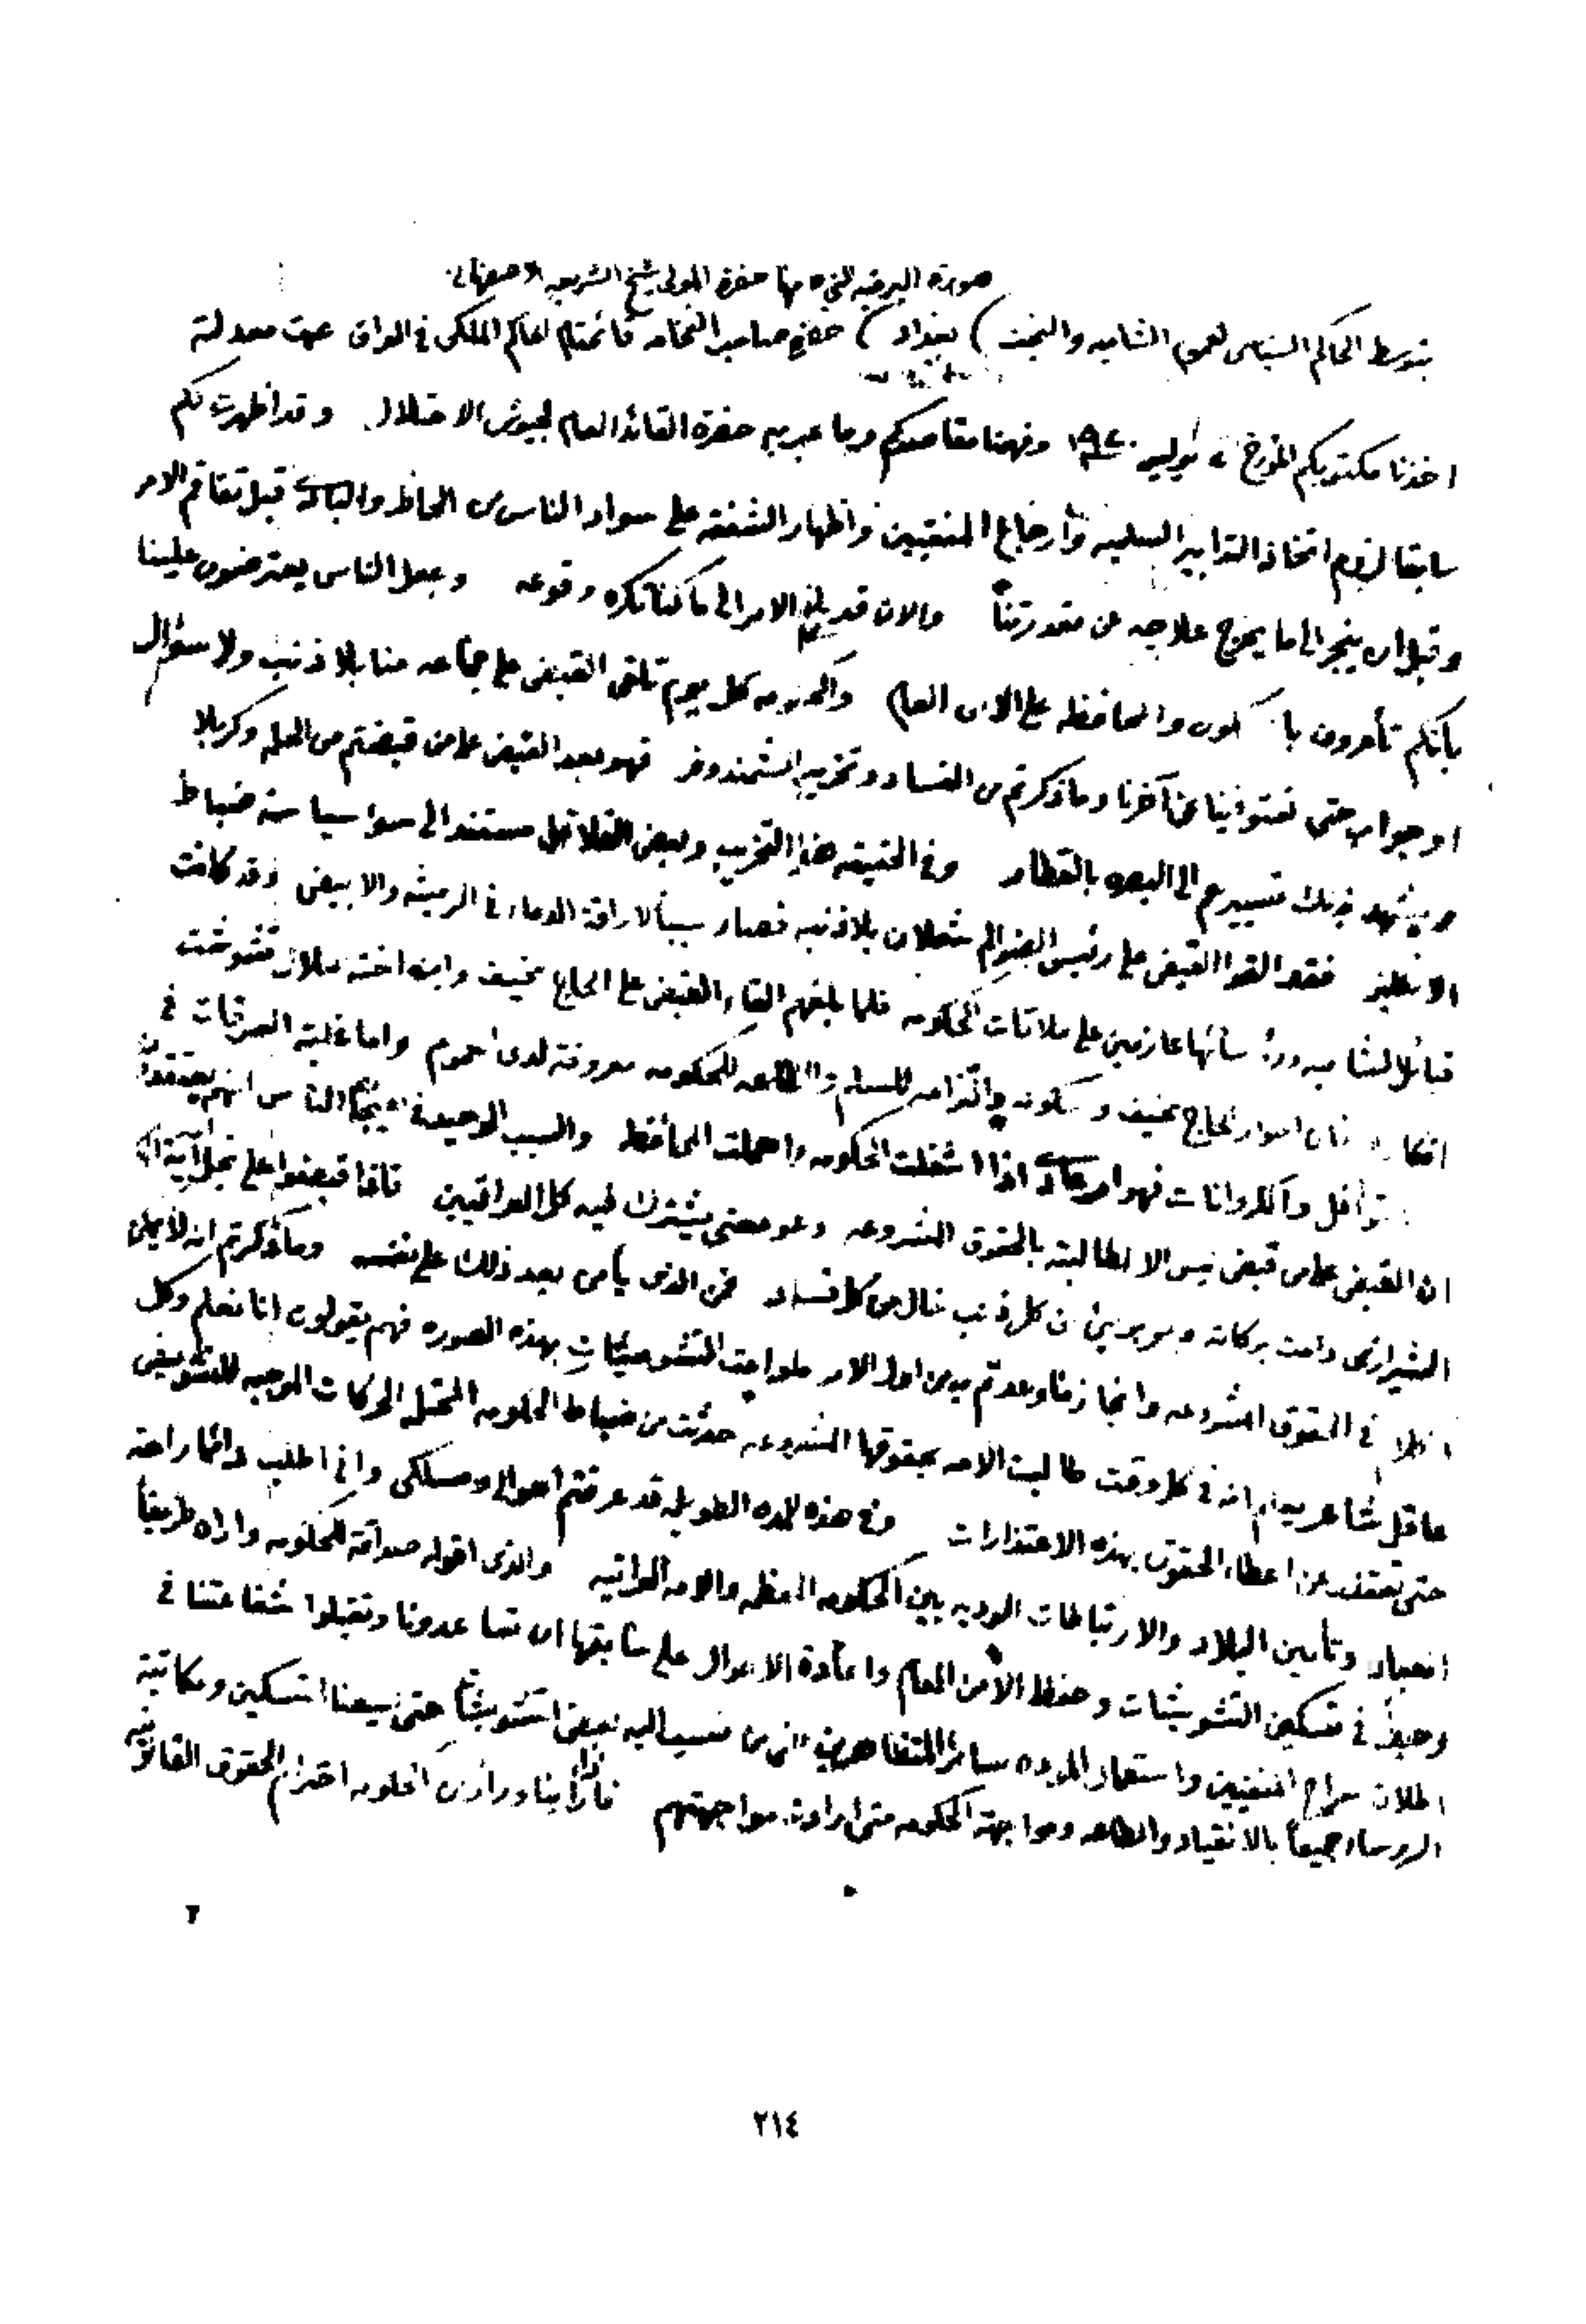 صورة البرقيه التي مها حضرة المولى شيخ الشريعه الاصفهاني
بتوسط الحاكم السياسي لعموم الشاميه والنجف ) بغداد ) حضرة صاحب الفخامه قائمقام الحاكم الملكي في العراق عمت معدلته
اخذنا مكتوبكم المؤرخ يوليو ١٩٢٠ وفهمنا مقاصدكم وما عبر به حضرة القائد العام لجيوش الاحتلال وقد اظهرت لكم
سابقا لزوم اتخاذ التدابير السلميه وأرجاع المنفيين واظهار الشفقه على سواد الناس من الحاظر والباد قبل تفاقم الامر
وقبل ان ينجر الى ما يخرج علاجه عن مقدرتنا والان قد بلغ الامر الى ما كنا نكره وقوعه وجعل الناس يعترضون علينا
بأنكم تأمرون با كون والمحافظه على الامن العام والحكومه كل يوم تلقى القبض على جماعه منا بلا ذنب ولا سئوال
او جواب حتى نفنوا عن آخرنا وما ذكرتم من الفساد وتخريب الشمندوفر فهو بعد القبض على من قبضتم من الحله وكربلا
ويشهد بذلك تسييرهم الى البصره بالقطار وفي الحقيقه هذا التخريب وبعض القلاقل مستند الى سوء سياسة ضباط
الانكليز فقد القوا القبض على رئيس الضوالم شعلان بلا ذنب فصار سببا لاراقة الدماء في الرميثه والابيض وقد كانت
قبائل الشاميه ورؤسائها عازمين على ملاقات الحكومه فلما بلغهم القاء القبض على الحاج مخيف وابن اخته سلمان تشوشت
افكارهم فان احوال الحاج مخيف وسكونه والتزامه للسلم والطاعه للحكومه معروفة لدى العموم واما غلبة السرقات في
القوافل والكاروانات فهو امر عادي اذا اشغلت الحكومه واهملت المحافظه والسبب الوحيد لهيجان الناس انهم يعتقدون
ان القبض على من قبض ليس الا لمطالبته بالحقوق المشروعه وهو معنى يشترك فيه كل العراقيين فاذا قبضوا على نجل آية الله
الشيرازي دامت بركاته وهو برئ من كل ذنب خال من كل فساد فمن الذي يأمن بعد ذلك على نفسه وما ذكرتم انه لا يمكن
في الحقوق المشروعه وانجاز ما وعدتم به من اول الامر ملواجب التشوشات بهذه الصوره فهم يقولون انا نعلم وكل
عاقل شاعر يعلم انه في كل وقت طالبت الامه بحقوقها المشروعه حدثت من ضباط الحكومه المحتله الحركات الموجبه للتشويش
حتى تعتذر عن اعطاء الحقوق بهذه الاعتذارات وفي هذه المده الطويله قد عرفتم احوالي ومسلكي واني اطلب دائما راحة
العباد وتأمين البلاد والارتباطات الوديه بين الحكومه المعظمه والامه العراقيه والذي اقوله صداقة للحكومه واراه طريقا
وحيدا في تسكين التشويشات وحفظ الامن العام واعادة الاحوال على سابقها ان تساعدونا وتقبلوا شفاعتنا في
اطلاق سراح المنفيين واستعمال الموده سائر المتظاهرين ممن نسب اليه بعض التشويش حتى يسعنا التسكين ومكاتبة
الرؤساء جميعا بالانقياد والطاعه ومواجهة الحكومه متى ارادت مواجهتهم فاذا رأينا ورأوا من الحكومه احترام الحقوق القانونيه
٢
٢١٤